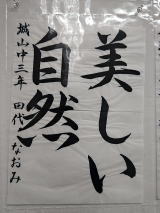 美しい
自然
城山中三年 田代 なおみ